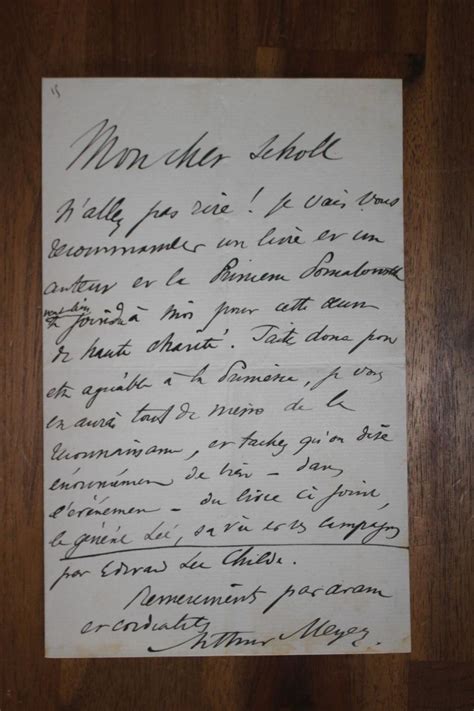 15
Mon cher Scholl
N'allez pas rire ! Je vais vous
recommander un livre et un
auteur et la Princesse
veut bien
se joindre à moi pour cette œuvre
de haute charité. Faite donc pour
être agréable à la Princesse, je vous
en aurai tout de même de la
reconnaissance, et tachez qu'on dise
énormément de bien – dans
l'événement – du livre ci joint,
le général Lee, sa vie et ses campagnes
par Edward Lee Childe.
Remerciements par avance
et cordialités
Arthur Meyer